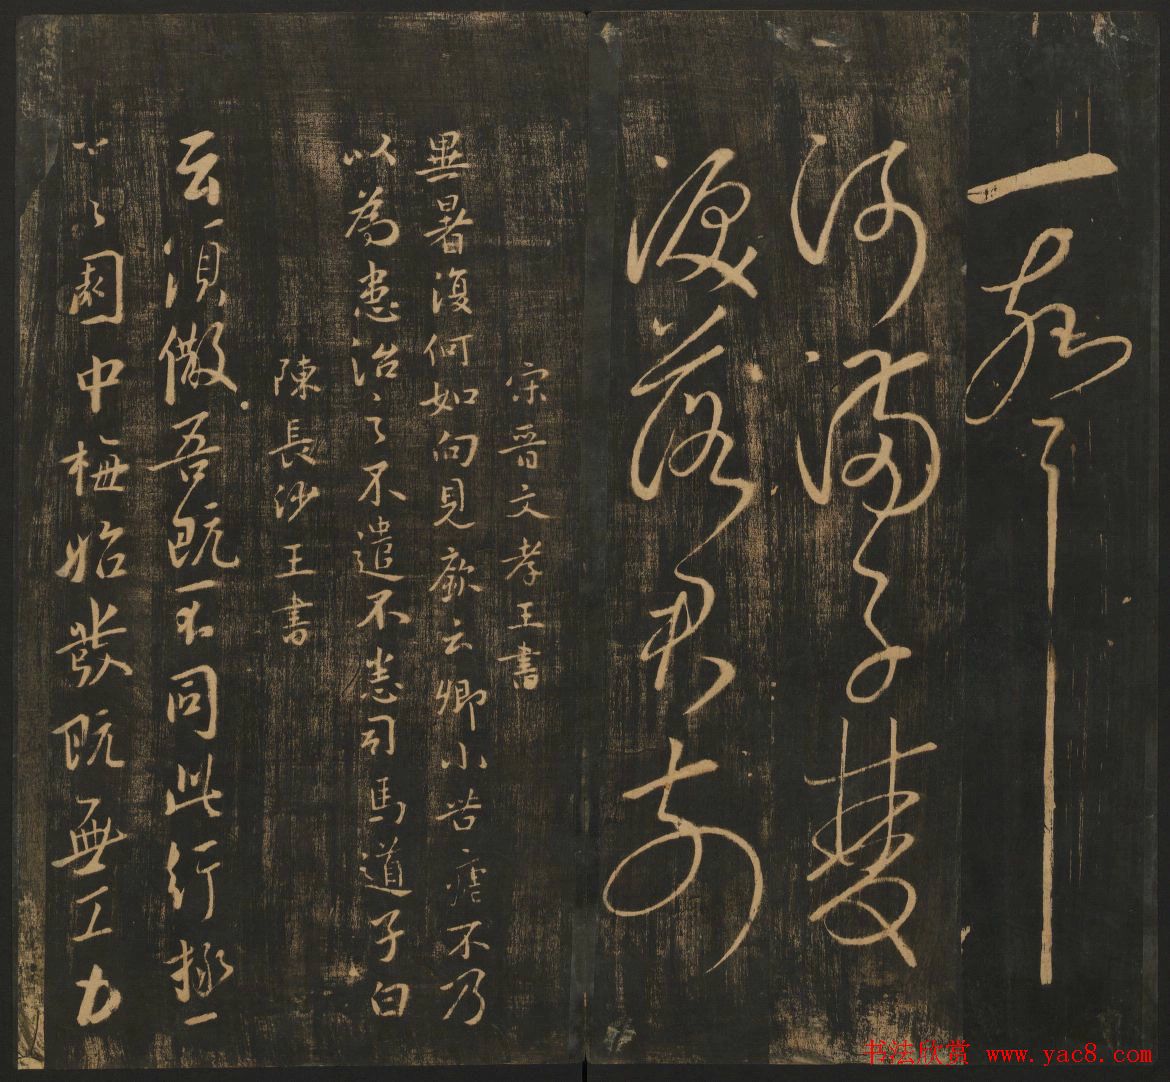 一聲
河滿子雙
淚落君前
宋晋文孝王書
異暑復何如向見厥云卿小苦瘧不乃
以為患治之不遣不恚司馬道子白
陳長沙王書
云須吾既不同此行極一
園中梅始發既無工力
书法欣赏 www.yac8.com